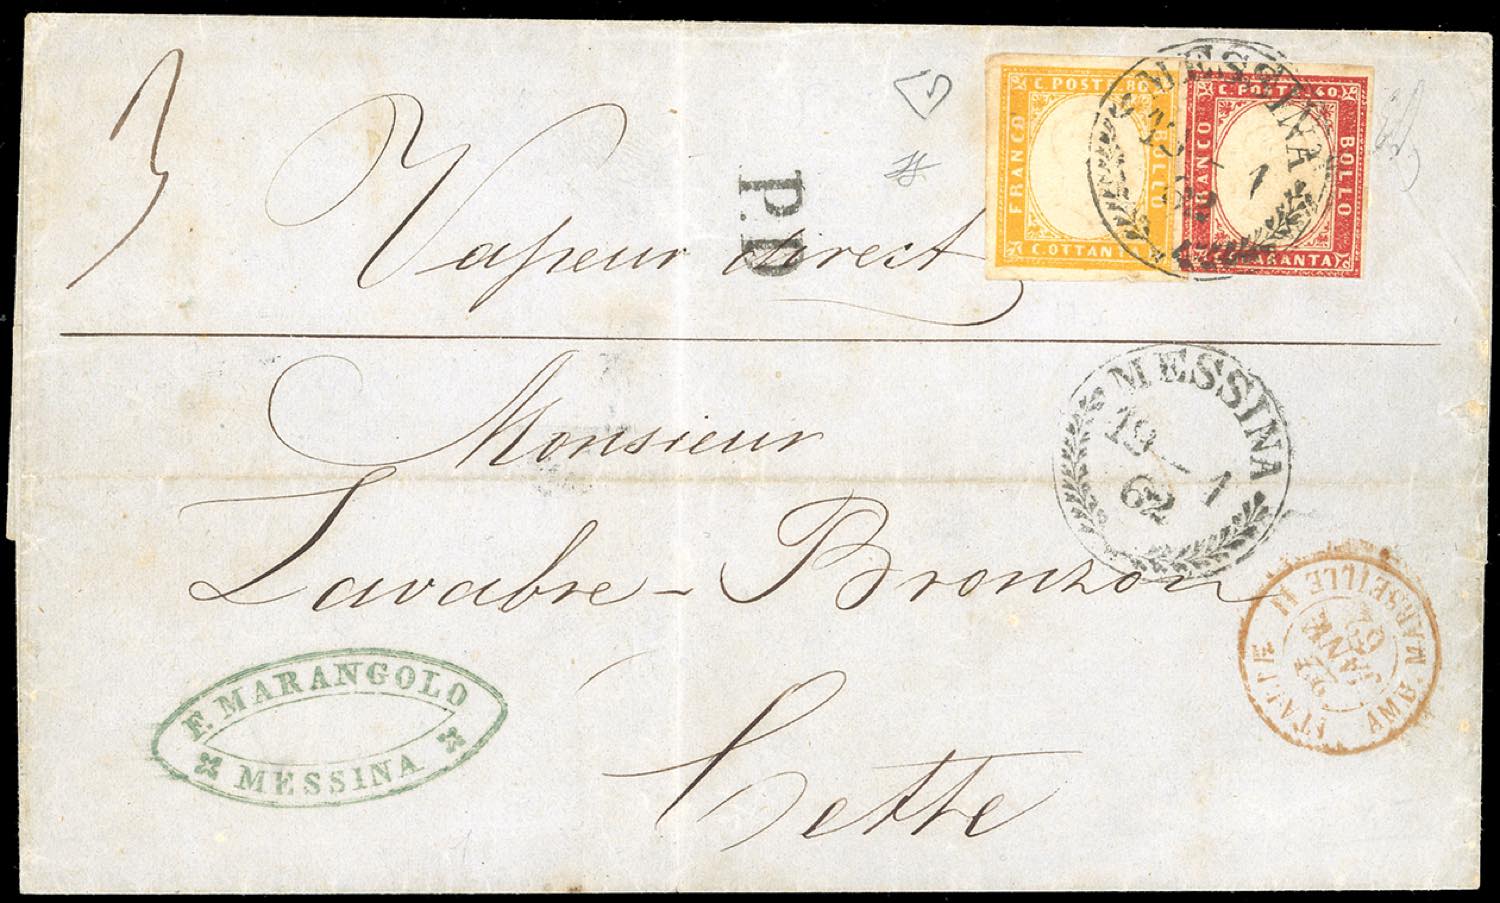 3
Vapeur direct
P.D
C. POSTE. 80
FRANCO
BOLLO
C. OTTANTA
C. POSTE. 40
FRANCO
BOLLO
C. QUARANTA
MESSINA
19 1
62
Monsieur
MESSINA
19 1
62
Lavabre - Bronzon
ITALIE AMB. MARSEILLE
JANV.
62
F. MARANGOLO
MESSINA
Cette